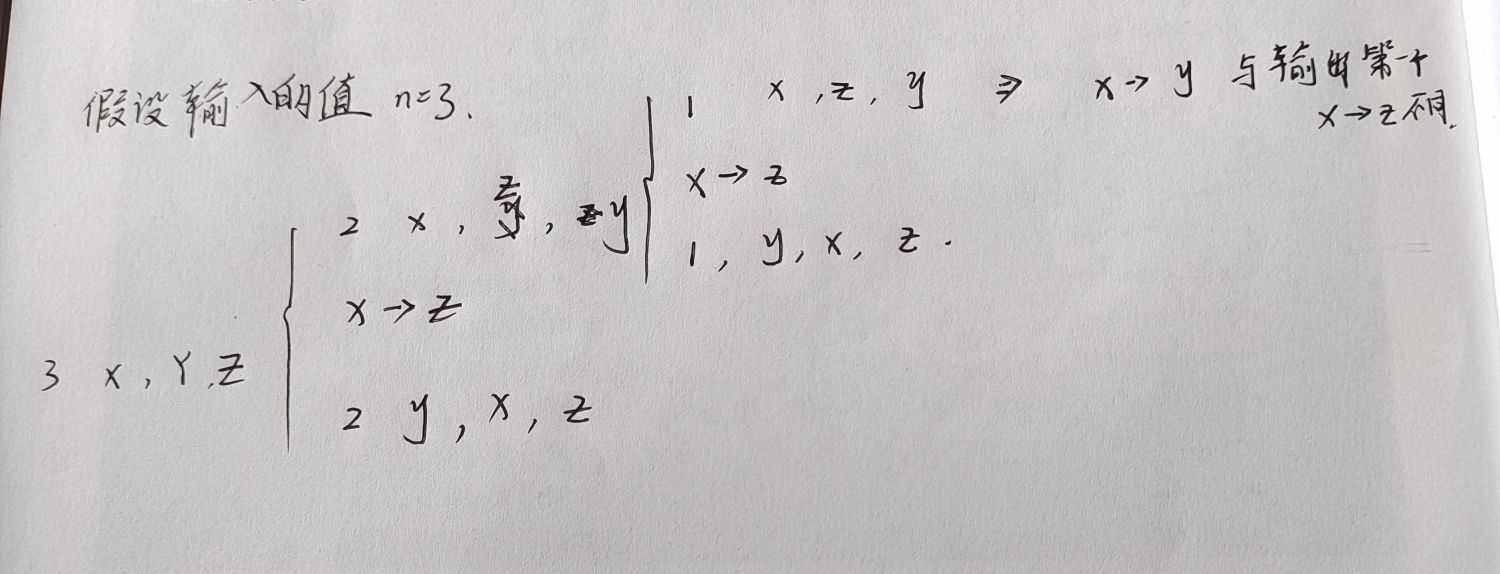 假设输入的值 n=3.
1 x, z, y ⇒ x→y 与输出第一个
x→z不同.
x→z
2 x, z, y
1, y, x, z.
x→z
3 x, Y, Z
2 y, x, z